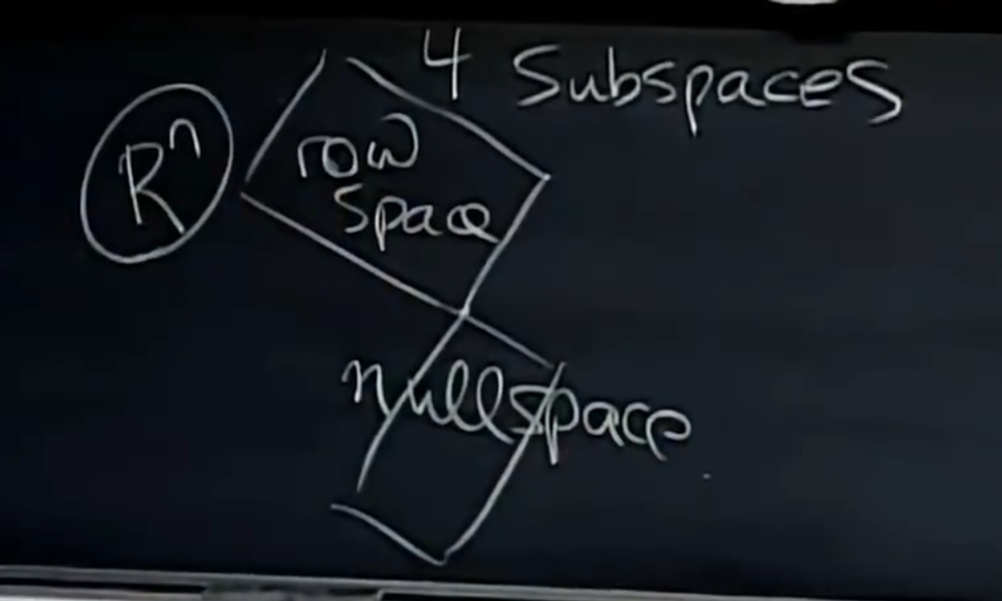 4 Subspaces
Rⁿ
row
space
nullspace